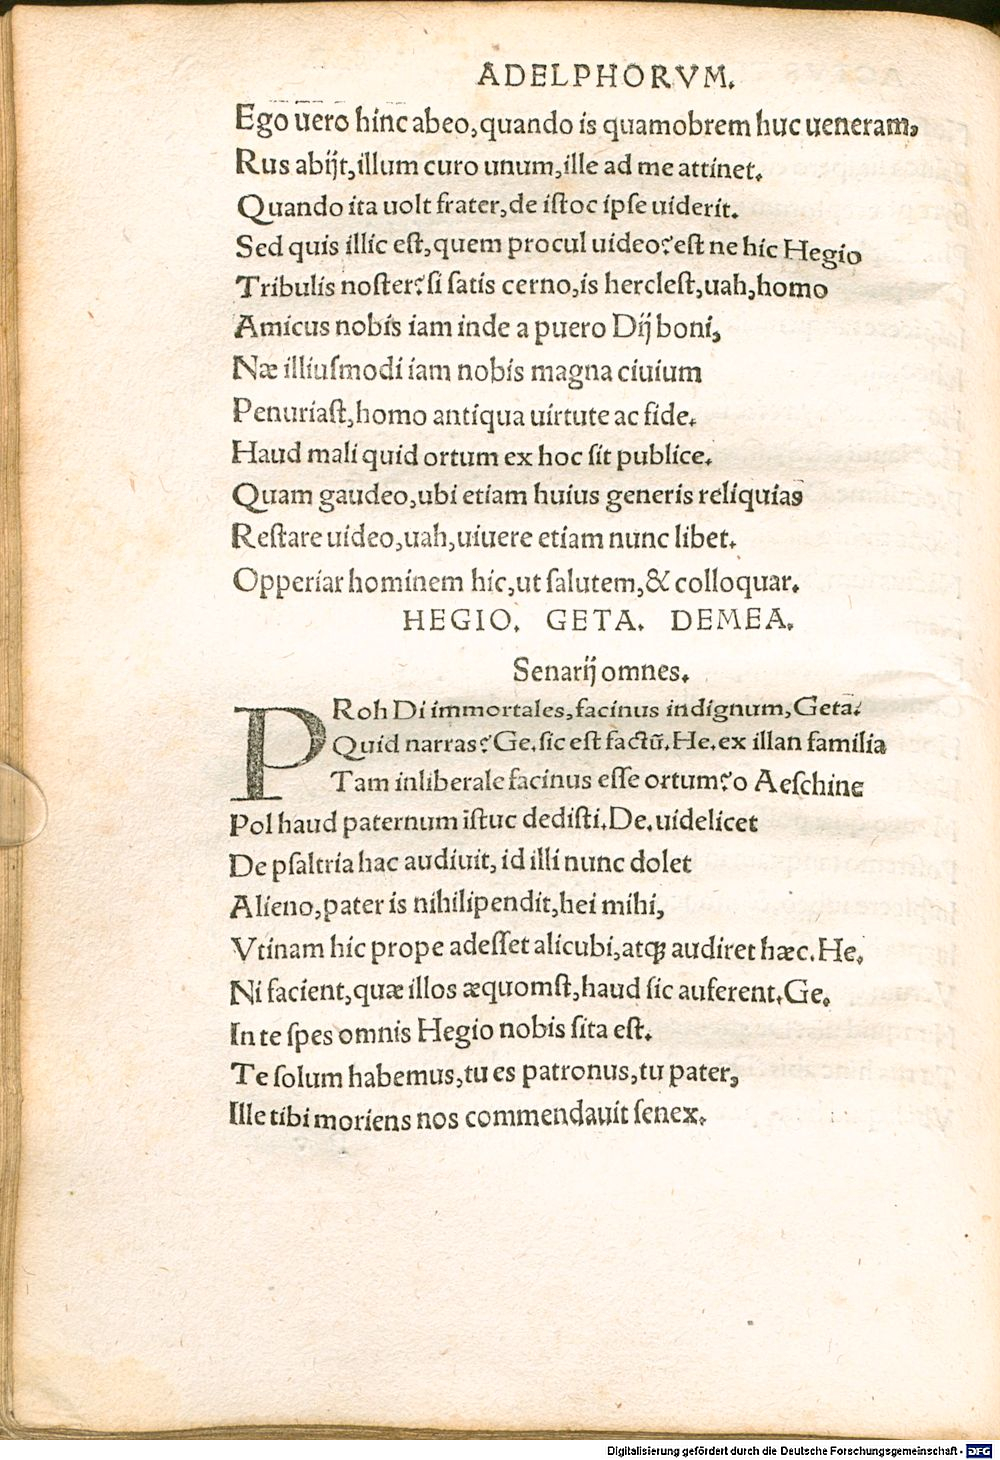 ADELPHORVM.
Ego uero hinc abeo,quando is quamobrem huc ueneram,
Rus abijt,illum curo unum,ille ad me attinet.
Quando ita uolt frater,de iſtoc ipſe uiderit.
Sed quis illic eſt,quem procul uideo?eſt ne hic Hegio
Tribulis noſter?ſi ſatis cerno,is hercleſt,uah,homo
Amicus nobis iam inde a puero Dij boni,
Næ illiuſmodi iam nobis magna ciuium
Penuriaſt,homo antiqua uirtute ac fide.
Haud mali quid ortum ex hoc ſit publice.
Quam gaudeo,ubi etiam huius generis reliquias
Reſtare uideo,uah,uiuere etiam nunc libet.
Opperiar hominem hic,ut ſalutem,& colloquar.
HEGIO. GETA. DEMEA.
Senarij omnes.
PRoh Di immortales,facinus indignum,Geta.
Quid narras?Ge.ſic eſt factū.He.ex illan familia
Tam inliberale facinus eſſe ortum?o Aeſchine
Pol haud paternum iſtuc dediſti.De.uidelicet
De pſaltria hac audiuit,id illi nunc dolet
Alieno,pater is nihilipendit,hei mihi,
Vtinam hic prope adeſſet alicubi,atqꝫ audiret hæc.He.
Ni facient,quæ illos æquomſt,haud ſic auferent.Ge.
In te ſpes omnis Hegio nobis ſita eſt.
Te ſolum habemus,tu es patronus,tu pater,
Ille tibi moriens nos commendauit ſenex.
Digitalisierung gefördert durch die Deutsche Forschungsgemeinschaft - DFG